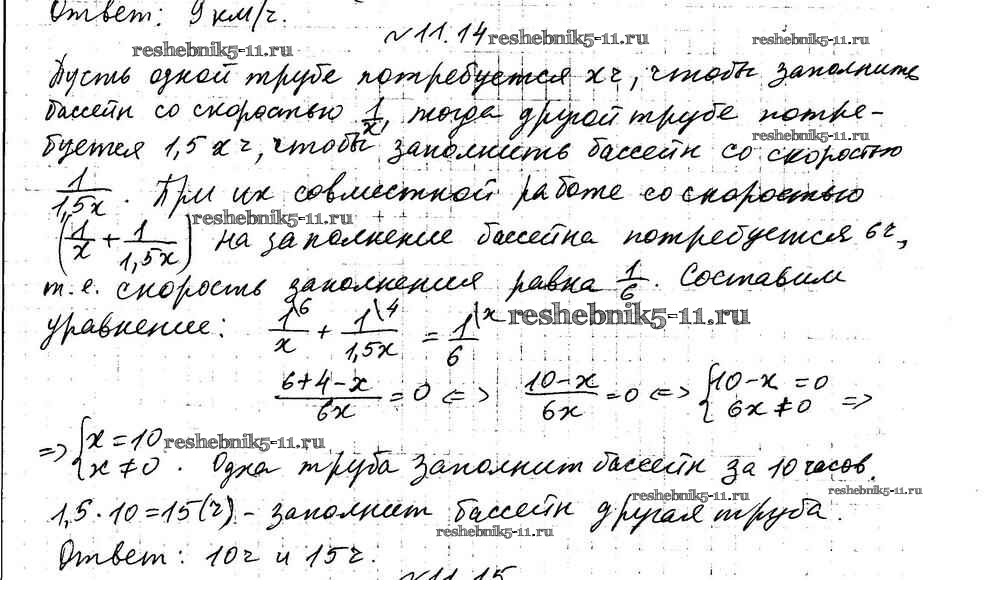 Ответ: 9 км/ч.
№11.14 reshebnik5-11.ru reshebnik5-11.ru
Пусть одной трубе потребуется x ч, чтобы заполнить
бассейн со скоростью 1/x, тогда другой трубе потре-
reshebnik5-11.ru
буется 1,5x ч, чтобы заполнить бассейн со скоростью
1/1,5x. При их совместной работе со скоростью
reshebnik5-11.ru
(1/x + 1/1,5x) на заполнение бассейна потребуется 6ч,
т.е. скорость заполнения равна 1/6. Составим
уравнение: 1\6/x + 1\4/1,5x = 1\x/6 reshebnik5-11.ru
(6+4-x)/6x = 0 <=> (10-x)/6x = 0 <=> {10-x=0 6x≠0 =>
=> {x=10 x≠0. Одна труба заполнит бассейн за 10 часов.
reshebnik5-11.ru
reshebnik5-11.ru reshebnik5-11.ru
1,5·10=15(ч) - заполнит бассейн другая труба.
reshebnik5-11.ru
Ответ: 10ч и 15ч.
№11.15